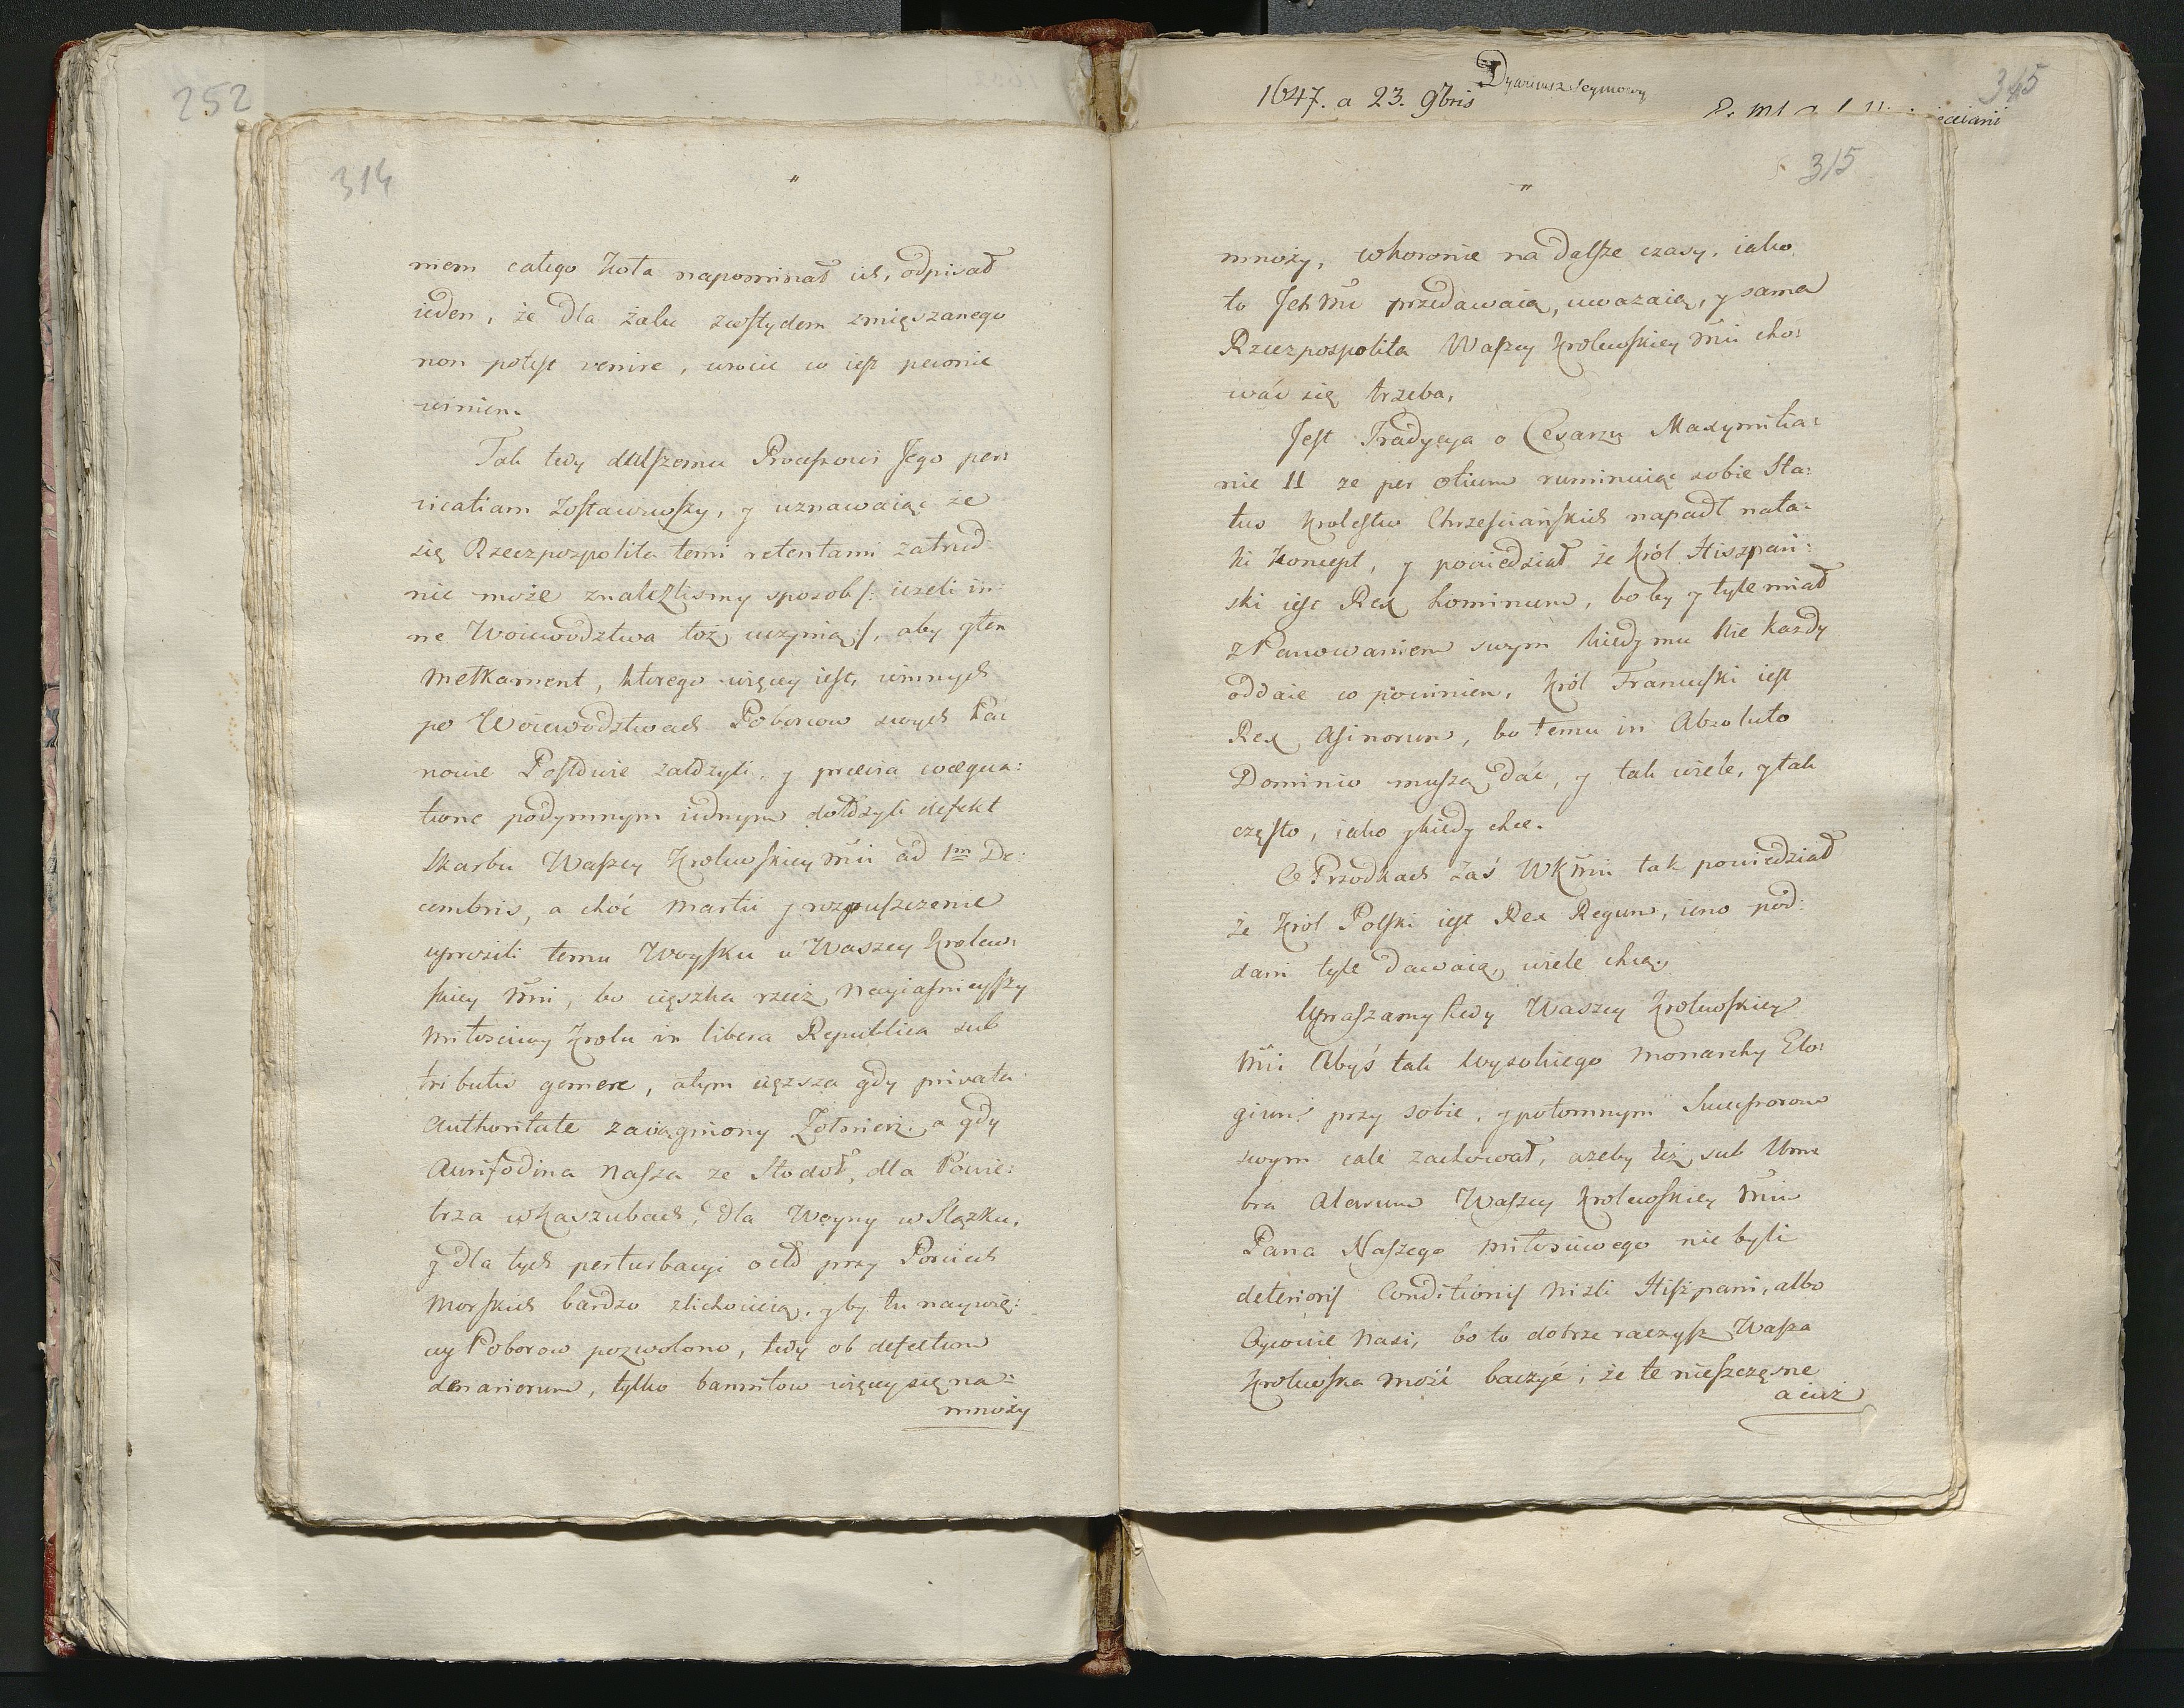 252
314
"
niem całego Koła napominał ich, odpisał
ieden, że dla żalu zwstydem zmięszanego
non potest venire, wrócie co iest pewonie
winien.
Tak tedy dalszemu Processowi Jego per:
vicatiam zostawiwszy, y uznawaiąc że
się Rzeczpospolita temi retentami zatrud:
nie może znaleźlismy sposob /: ieżeli in:
ne Woiewodztwa toż uczynią :/, aby y ten
Metkament, ktorego więcey iest, winnych
po Woiewodztwach Poborcow swych Pa:
nowie Posłowie załozyli, y praevia coaequa:
tione podymnym iednym dołozyli defekt
Skarbu Waszey Krolewskiey Mći ad 1m De:
cembris, a choć Martii y rozpuszczenie
uprosili temu Woysku u Waszey Krolew:
skiey Mći, bo cięszka rzecz Nayiaśnieyszy
Miłosciwy Krolu in libera Republica sub
tributis gemere, atym cięzsza gdy privata
Authoritate zaciągniony Żołnierz. a gdy
Aurifodina Nasza ze Stodoł, dla Powie:
trza w Kaszubach, dla Woyny w Slązku,
y dla tych perturbacyi o cło przy Portach
Morskich bardzo zlichocicią, y by tu naywię:
cy Poborow pozwolono, tedy ob defectum
denariorum, tylko bannitow więcey się na:
mnoży
1647. a 23. 9bris
Dyariusz Seymowy
315
315
"
mnoży, w Koronie na dalsze czasy, iako
to Jch Mć przedawaią, uwazaią, y sama
Rzeczpospolita Waszey Krolewskiey Mći cho:
wać się trzeba.
Jest Tradycya o Cesarzu Maxymilia:
nie II ze per otium ruminuiąc sobie Sta:
tus Krolestw Chrześciańskich napadł na ta:
ki Koncept, y powiedział że Król Hiszpań:
ski iest Rex hominum, boby y tyle miał
z Panowaniem swym kiedy mu nie każdy
oddaie co powinien, Król Francuski iest
Rex Asinorum, bo temu in Absoluto
Dominio muszą dać, y tak wiele, y tak
często, iako y kiedy chce.
O Przodkach zaś WKMći tak powiedział
że Król Polski iest Rex Regum, ieno pod:
dani tyle dawaią, wiele chcą.
Upraszamy tedy Waszey Krolewskiey
Mći Abyś tak wysokiego Monarchy Elo:
gium przy sobie, y potomnym Successorom
swym cale zachował, azeby też sub Um:
bra Alarum Waszey Krolewskiey Mći
Pana Naszego Miłosciwego nie byli
deterioris Conditionis niżli Hiszpani, albo
Oycowie Nasi, bo to dobrze raczysz Wasza
Krolewska Mość baczyć, że te nieszczęsne
a iuż